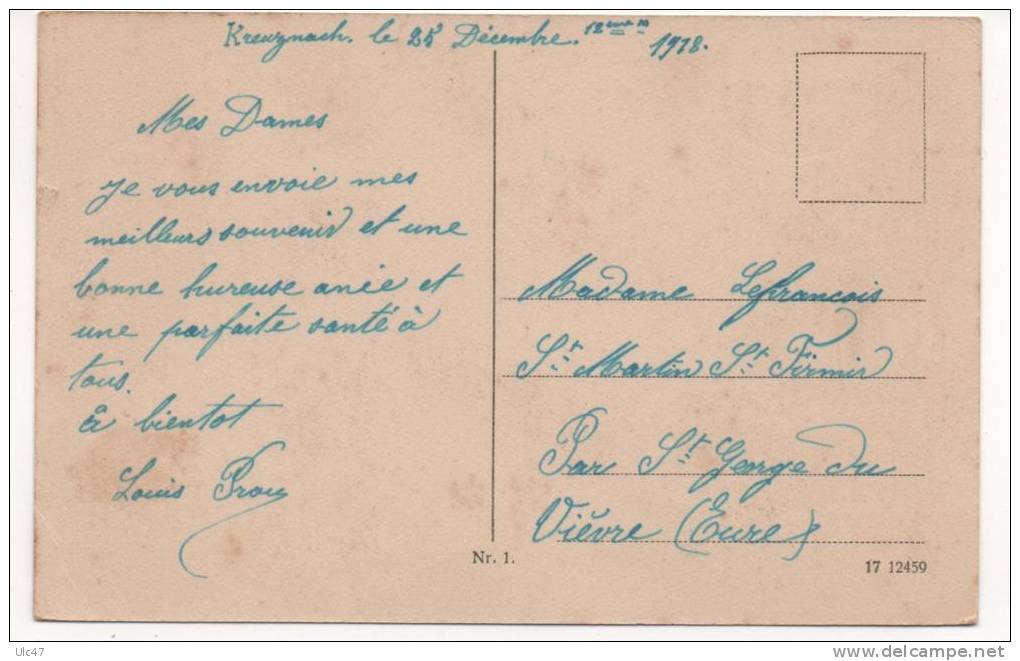 Kreuznach. le 25 Décembre. 1918.
Mes Dames
Je vous envoie mes
meilleurs souvenir et une
bonne hureuse anée et
une parfaite santé à
tous.
à bientot
Louis
Madame Lefrancois
St. Martin St. Firmin
Par St. George du
Vièvre (Eure)
Nr. 1.
17 12459
Ulc47
www.delcampe.net